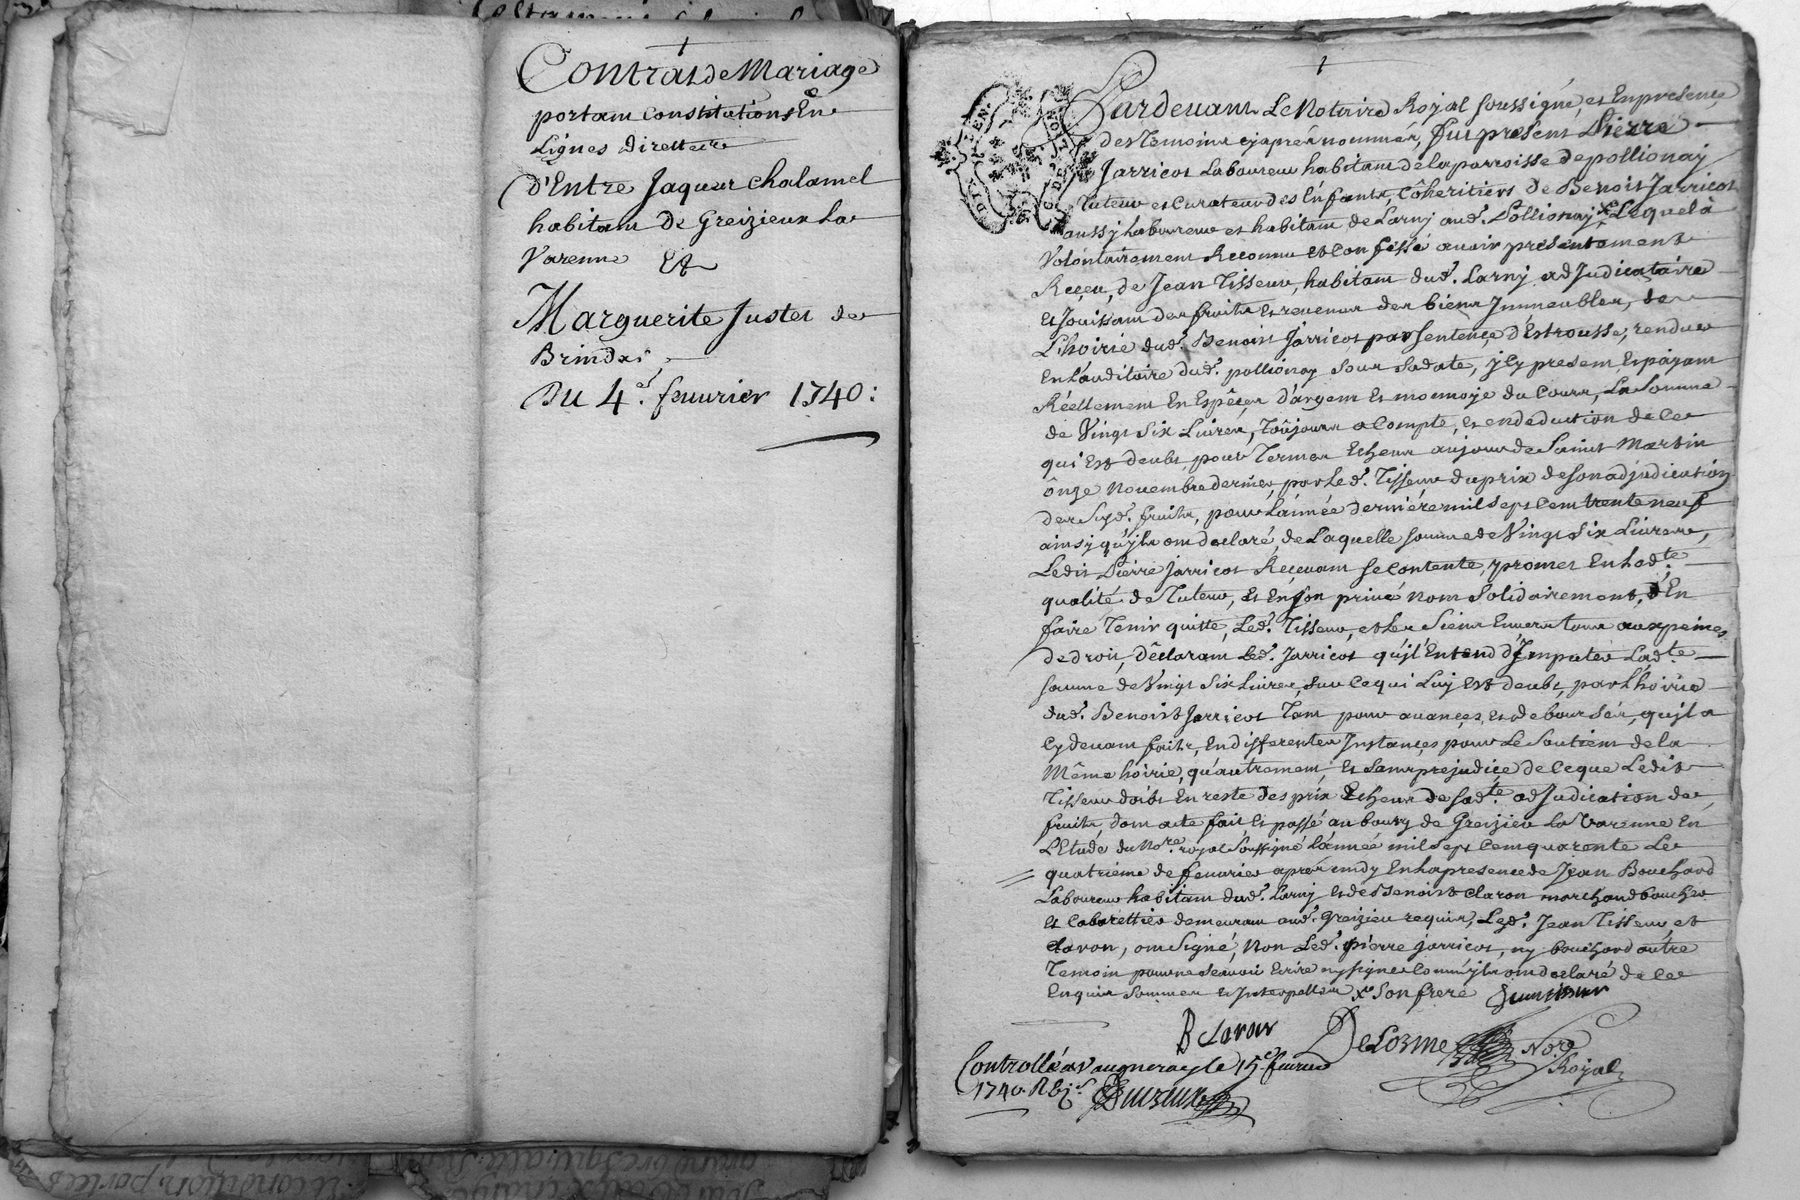 Contrat de Mariage
portant constitutions En
Lignes Directte
d'Entre Jaques chalamel
habitant De Greizieux La
Varenne Et
Marguerite Justet de
Brindas
Du 4e. feuurier 1740:
Pardeuant Le Notaire Royal soussigné, et Enpresence
des Temoins cyaprés nommés, fut present Pierre
Jarricot Laboureur habitant de la parroisse de pollionay
Tuteur et Curateur des Enfants, Côheritiers de Benoist Jarricot
aussy Laboureur et habitant de Larny aud. Pollionay, x Lequel a
Volontairement Reconnu et Confessé auoir présentement
Reçeu, de Jean Tisseur, habitant dud. Larny adJudicataire
et Jouissant des fruits et reuenus des biens Immeubles, de
L'hoirie dud. Benoist Jarricot par sentence d'Estrousse, rendue
En L'auditoire dud. pollionay sous sa date, jcy present, et payant
Réellement En Espêces d'argent et monnoye du Cours, La Somme
de Vingt Six Liures, Toûjours a Compte, et en deduction de Ce
qui Est deubt, pour Termes Echeus au jour de Saint Martin
ônze Nouembre dernier, par Led. Tisseur du prix de son adjudication
des Susd. fruits, pour L'année derniére mil sept Cent trente neuf
ainsy qu'jls ont declaré, de Laquelle somme de Vingt Six Liures,
Ledit Pierre Jarricot Reçeuant se Contente, promet En Lad.te
qualité de Tuteur, et En son priué nom Solidairement, d'En
faire Tenir quitte, Led. Tisseur, et Les Siens Enuers tous aux peines
de droit, Dêclarant Led. Jarricot qu'jl Entend d'Imputer Lad.te
somme de Vingt Six Liures, sur Ce qui Luy Est deubt, par L'hoirie
dud. Benoist Jarricot Tant pour auances, et debourses, qu'jl a
Cy deuant faits, En differentes Instances pour Le Soutient de la
Même hoirie, qu'autrement, et sans prejudice de Ce que Ledit
Tisseur doibt En reste des prix Echeus de sad.te adJudication des
fruits, dont acte fait et passé au bourg de Greizieu La Varenne En
L'Etude du No.re royal Soussigné L'année mil sept Cent quarante Le
quatriéme de feurier aprés midy En La presence de Jean Bouchard
Laboureur habitant dud. Larny et de Benoist Claron marchand boucher
et Cabarettier demeurant aud. Greizieu requis, Led. Jean Tisseur et
Claron, ont Signé, Non Led. pierre jarricot, ny bouchard autre
Temoin pour ne sçauoir Ecrire ny signer Comm'jls ont declaré de Ce
Enquis Sommés et Interpellés x Son frere Jean tisseur
B Claron
DeLorme No.re
Royal
Controllé a Vaugneray le 15e. feurier
1740.